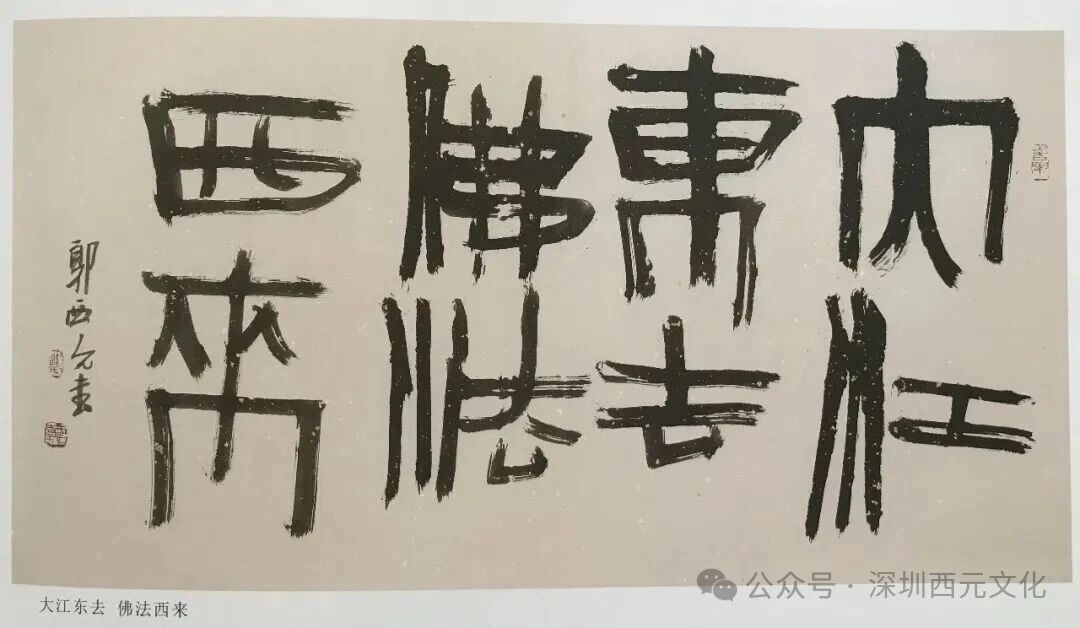 大江
東去
佛法
西來
郭西元書
大江东去 佛法西来
公众号·深圳西元文化